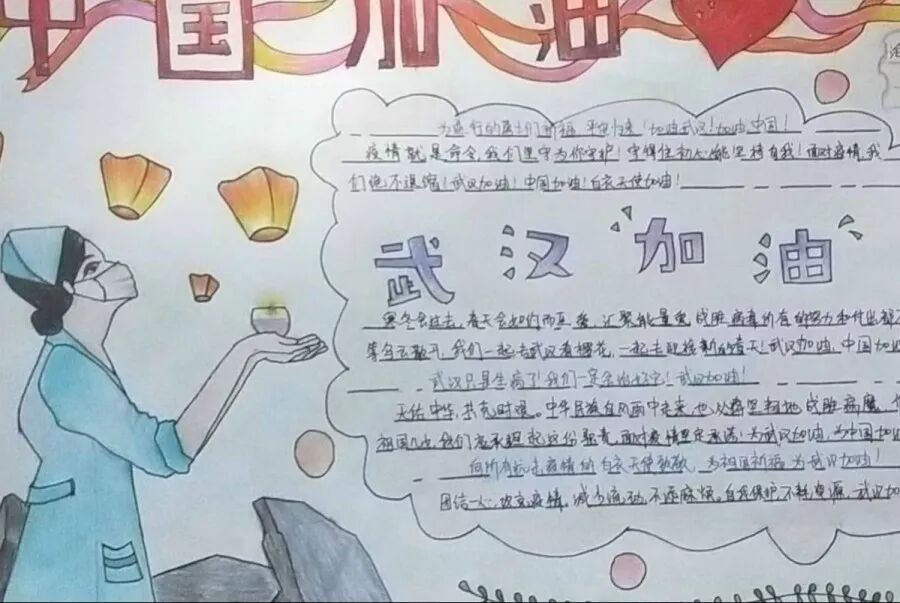 中国加油
为逆行的勇士们祈福 平安归来！加油武汉！加油 中国！
疫情就是命令，我们坚守为你守护！守得住初心能坚持自我！面对疫情，我
们绝不退缩！武汉加油！中国加油！白衣天使加油！
武汉加油
寒冬会过去，春天会如约而至 汇聚能量 战胜病毒 所有的努力和付出都
等乌云散开，我们一起去武汉看樱花，一起去迎接新的春天！武汉加油，中国加油
武汉只是生病了！我们一定会治好它！武汉加油！
天佑中华，共克时艰。中华民族自风雨中走来，也必将坚韧地战胜病魔，作
祖国儿女 我们应承担起这份责任，面对疫情坚定承诺！为武汉加油，为中国加油
向所有抗击疫情的白衣天使致敬，为祖国祈福 为武汉加油！
团结一心 攻克疫情，减少流动，不添麻烦。自我保护 不耗资源，武汉加